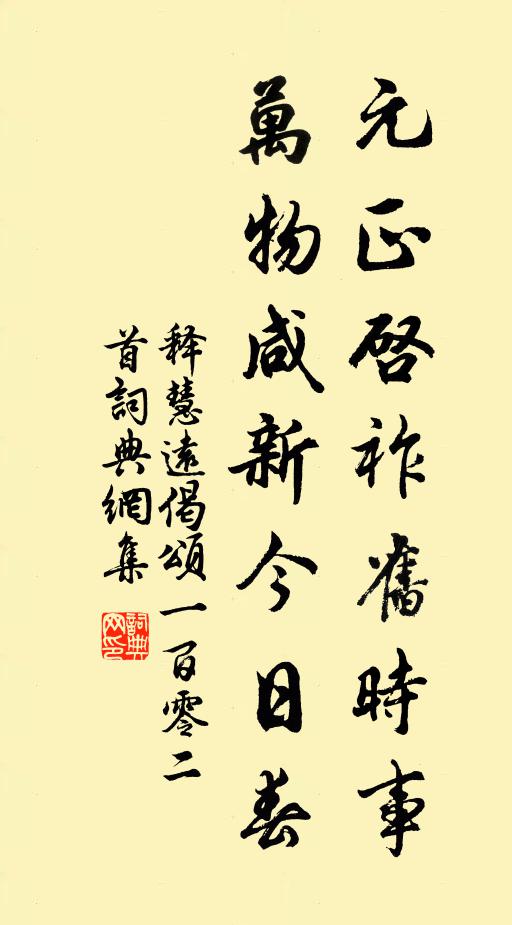 元正啓祚舊時事
萬物咸新今日春
释慧遠偈頌一百零二
首詞典網集
詞典网印